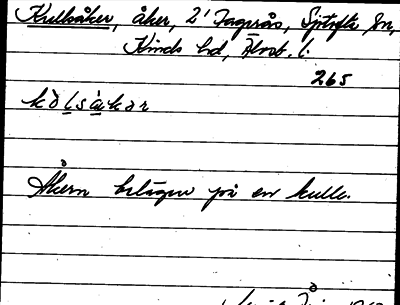 Kullsåker, åker, 2' Fagerås, Sjötofta sn,
Kinds hd, Älvsb. l.
265
kòlsåkər
Åkern belägen på en kulle.